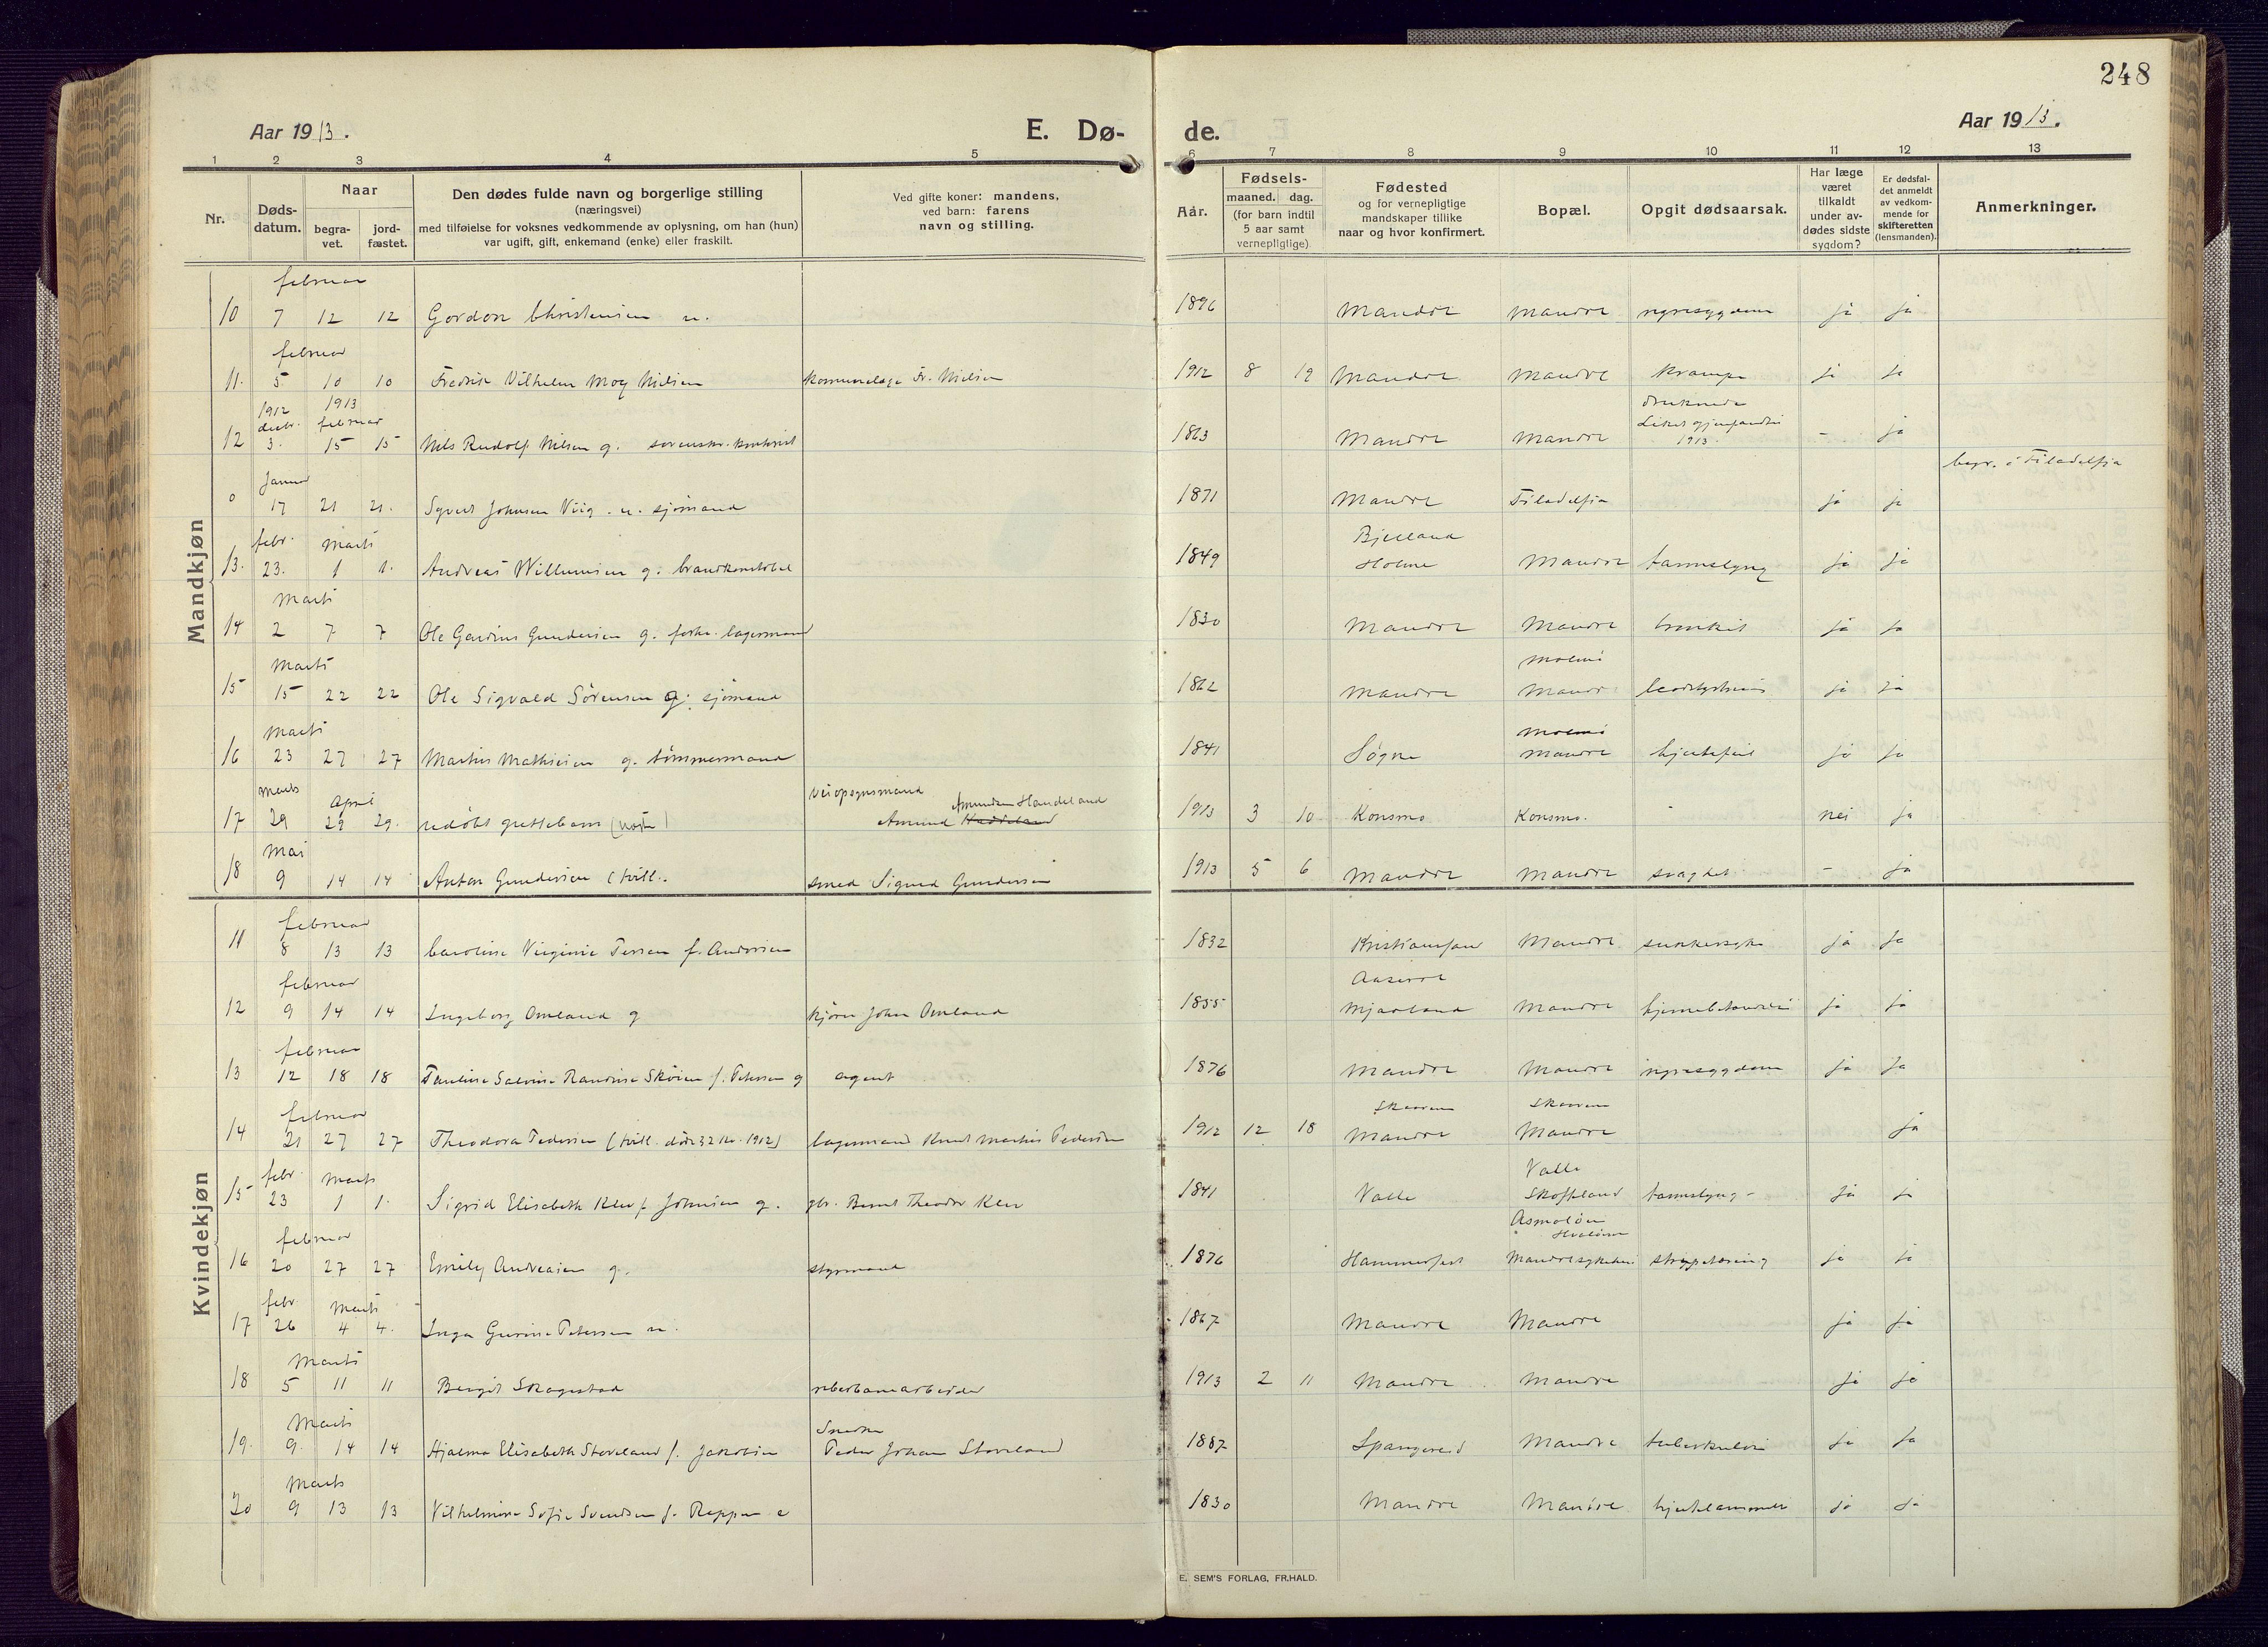 248
Aar 1913.
E. Dø-
de.
Aar 1913.
1 2 3 4 5 6 7 8 9 10 11 12 13
Nr.
Døds-
datum.
Naar
begra-
vet.
jord-
fæstet.
Den dødes fulde navn og borgerlige stilling
(næringsvei)
med tilføielse for voksnes vedkommende av oplysning, om han (hun)
var ugift, gift, enkemand (enke) eller fraskilt.
Ved gifte koner: mandens,
ved barn: farens
navn og stilling.
Aar.
Fødsels-
maaned. dag.
(for barn indtil
5 aar samt
vernepligtige)
Fødested
og for vernepligtige
mandskaper tillike
naar og hvor konfirmert.
Bopæl.
Opgit dødsaarsak.
Har læge
været
tilkaldt
under av-
dødes sidste
sygdom?
Er dødsfal-
det anmeldt
av vedkom-
mende for
skifteretten
(lensmanden).
Anmerkninger.
Mandkjøn
februar
10 7 12 12 Gordon Christensen u. 1896 Mandal Mandal nyresygdom ja ja
februar
11. 5 10 10 Fredrik Vilhelm Moy Nielsen Fr. Nielsen 1912 8 12 Mandal Mandal krampe ja ja
1912 1913
decbr. februar druknede
12 3. 15 15 Nils Rudolf Nilsen g. 1863 Mandal Mandal 1913. - ja
Januar begr. i Filadelfia
0 17 21 21. Sigvert Johnsen Viig. u. sjømand 1871 Mandal Filadelfia ja ja
febr. marts Bjelland
13. 23. 1 1. Andreas Willumsen g. brandkonstabel 1849 Holme Mandal tarmslyng ja ja
Marts
14 2 7 7 Ole Gundersen g. forhv. lagermand 1830 Mandal Mandal bronkit ja ja
Marts
15 15 22 22 Ole Sigvald Sørensen g. sjømand 1862 Mandal Mandal ja ja
Marts
16 23 27 27 Martin Mathisen g. tømmermand 1841 Søgne Mandal hjertefeil ja ja
marts april veiopsynsmand Amundsen Handeland
17 29 29 29. udøbt guttebarn Amund 1913 3 10 Konsmo Konsmo. nei ja
Mai
18 9 14 14 Anton Gundersen (tvill. smed Sigurd Gundersen 1913 5 6 Mandal Mandal svaghet - ja
Kvindekjøn
februar
11 8 13 13 Caroline Virginie f. Andersen 1832 Kristiansand Mandal sukkersyke ja ja
februar Aaseral
12 9 14 14 Ingeborg Omland g kjører John Omland 1855 Mjaaland Mandal ja ja
februar
13 12 18 18 Pauline Salvine Randine Skøien f. Petersen g agent 1876 Mandal Mandal nyresygdom ja ja
februar
14 21 27 27 Theodora Pedersen (tvill. 1912) lagermand Knut Martin Pedersen 1912 12 18 Mandal Mandal ja
febr. marts Valle
15 23 1 1. Sigrid Elisabeth Klev f. Johnsen g. gbr. Bernt Theodor Klev 1841 Valle Skoftland tarmslyng - ja ja
februar
16 20 27 27 Emily Andreasen g. styrmand 1876 Hammerfest ja ja
febr. marts
17 26 4 4. Inga Gurine Petersen u. 1867 Mandal Mandal ja ja
Marts
18 5 11 11 Bergit Skagestad reberbanearbeider 1913 2 11 Mandal Mandal ja ja
Marts Snedker
19. 9. 14 14 Hjalma Elisabeth Støveland f. Jakobsen Peder Johan Støveland 1887 Spangereid Mandal tuberkulose ja ja
Marts
20 9 13 13 Vilhelmine Sofie Svendsen f. Reppen e 1830 Mandal Mandal ja ja
E. SEM'S FORLAG, FR.HALD.